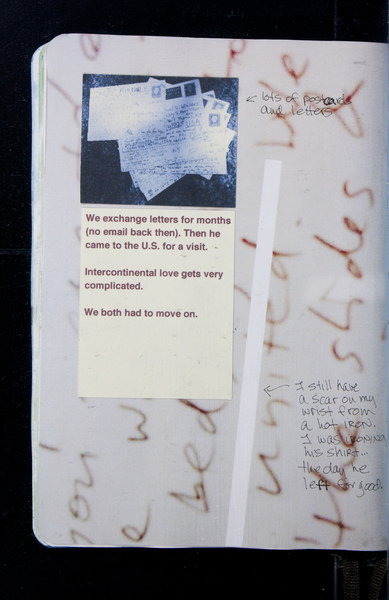 ← lots of postcards
and letters
We exchange letters for months
(no email back then). Then he
came to the U.S. for a visit.
Intercontinental love gets very
complicated.
We both had to move on.
← I still have
a scar on my
wrist from
a hot IRON.
I was IRONING
his shirt...
the day he
left for good.
you'
united